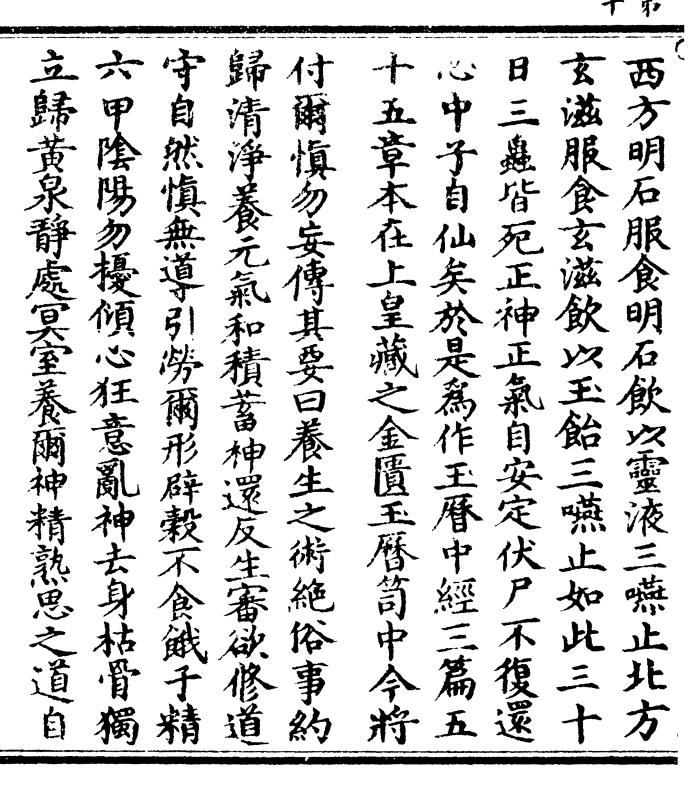 西方明石服食明石飲以靈液三嚥止北方
玄滋服食玄滋飲以玉飴三嚥止如此三十
日三蟲皆死正神正氣自安定伏尸不復還
心中子自仙矣於是爲作玉曆中經三篇五
十五章本在上皇藏之金匱玉曆笥中今將
付爾愼勿妄傳其要曰養生之術絶俗事約
歸清淨養元氣和積蓄神還反生審欲修道
守自然愼無導引勞爾形辟穀不食餓子精
六甲陰陽勿擾傾心狂意亂神去身枯骨獨
立歸黃泉靜處冥室養爾神精熟思之道自